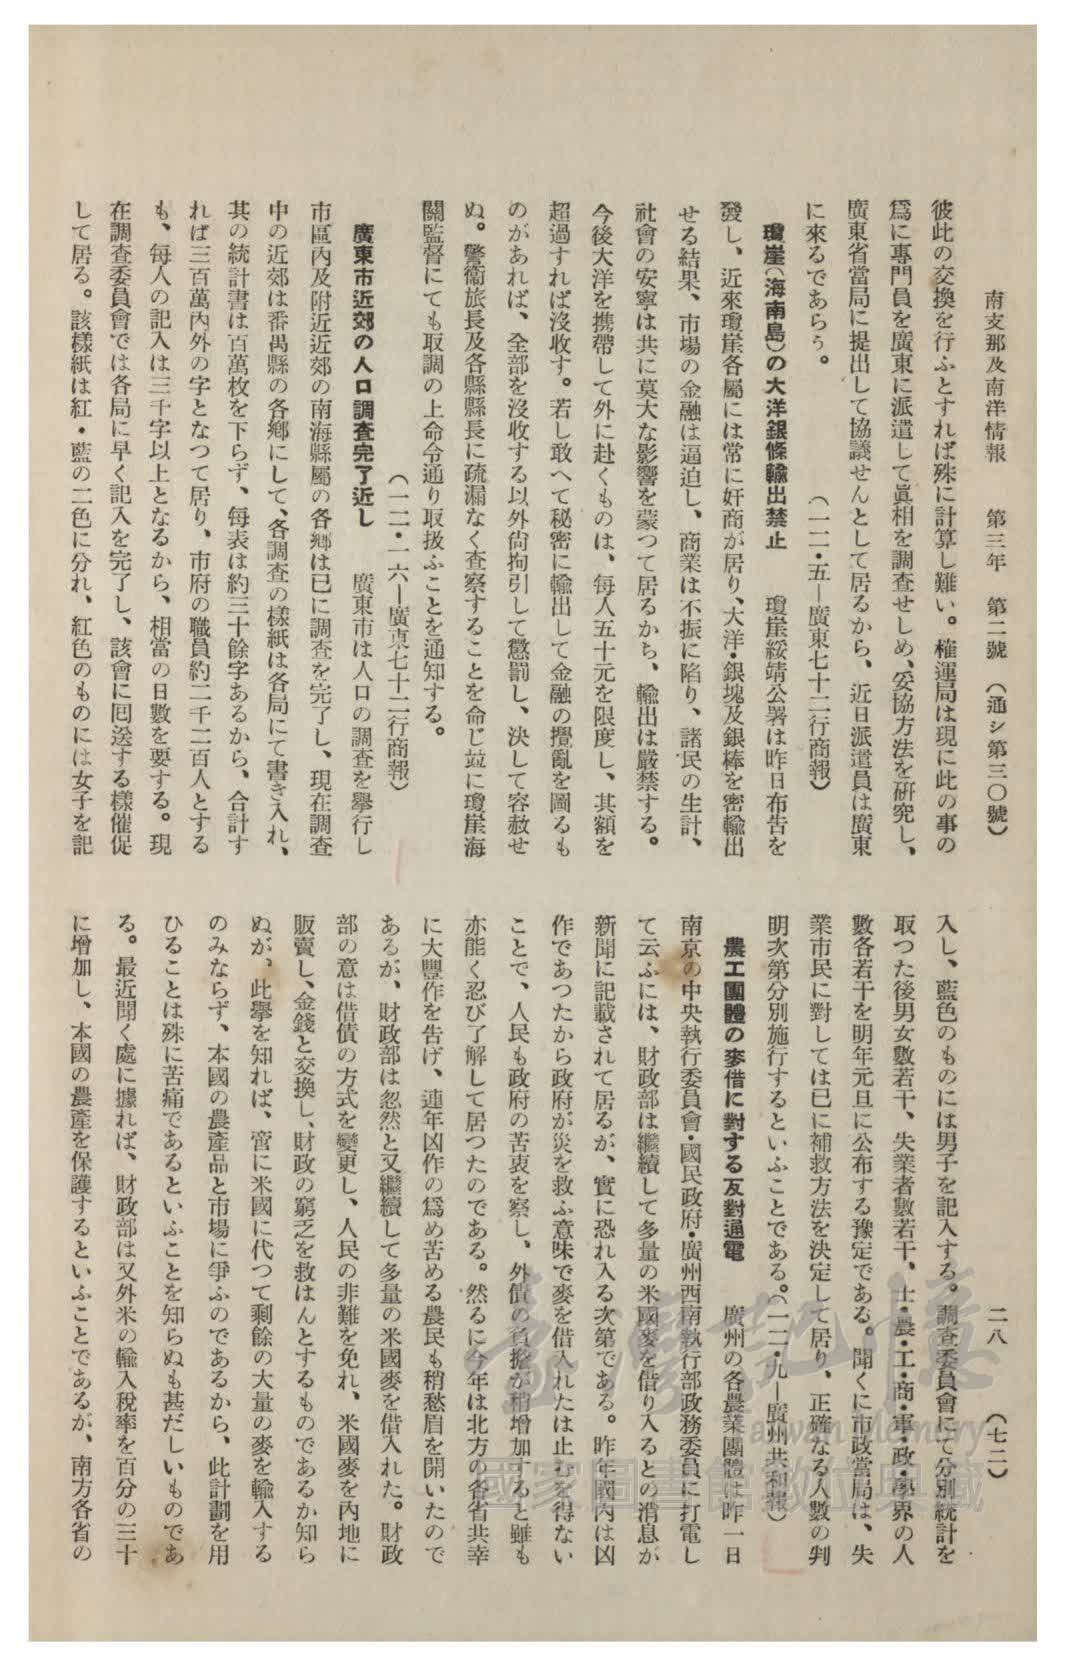 南支那及南洋情報　第三年　第二號　（通シ第三〇號）
二八　（七二）
彼此の交換を行ふとすれば殊に計算し難い。権運局は現に此の事の
爲に專門員を廣東に派遣して眞相を調査せしめ、妥協方法を硏究し、
廣東省當局に提出して協議せんとして居るから、近日派遣員は廣東
に來るであらう。　（一二・五―廣東七十二行商報）
瓊崖（海南島）の大洋銀條輸出禁止　瓊崖綏靖公署は昨日布告を
發し、近來瓊崖各屬には常に奸商が居り、大洋・銀塊及銀棒を密輸出
せる結果、市場の金融は逼迫し、商業は不振に陷り、諸民の生計、
社會の安寧は共に莫大な影響を蒙つて居るから、輸出は嚴禁する。
今後大洋を携帶して外に赴くものは、每人五十元を限度し、其額を
超過すれば沒收す。若し敢へて秘密に輸出して金融の攪亂を圖るも
のがあれば、全部を沒收する以外尙拘引して懲罰し、決して容赦せ
ぬ。警衞旅長及各縣縣長に疏漏なく查察することを命じ竝に瓊崖海
關監督にても取調の上命令通り取扱ふことを通知する。
（一二・一六―廣東七十二行商報）
廣東市近郊の人口調査完了近し　廣東市は人口の調査を擧行し
市區內及附近近郊の南海縣屬の各鄕は已に調査を完了し、現在調査
中の近郊は番禺縣の各鄕にして、各調査の樣紙は各局にて書き入れ、
其の統計書は百萬枚を下らず、每表は約三十餘字あるから、合計す
れば三百萬內外の字となつて居り、市府の職員約二千二百人とする
も、每人の記入は三千字以上となるから、相當の日數を要する。現
在調査委員會では各局に早く記入を完了し、該會に囘送する樣催促
して居る。該樣紙は紅・藍の二色に分れ、紅色のものには女子を記
入し、藍色のものには男子を記入する。調査委員會にて分別統計を
取つた後男女數若干、失業者數若干、士・農・工・商・軍・政・學界の人
數各若干を明年元旦に公布する豫定である。聞くに市政當局は、失
業市民に對しては已に補救方法を決定して居り、正確なる人數の判
明次第分別施行するといふことである。（一二・九―廣州共和報）
農工團體の麥借に對する反對通電　廣州の各農業團體は昨一日
南京の中央執行委員會・國民政府・廣州西南執行部政務委員に打電し
て云ふには、財政部は繼續して多量の米國麥を借り入るとの消息が
新聞に記載されて居るが、實に恐れ入る次第である。昨年國內は凶
作であつたから政府が災を救ふ意味で麥を借入れたは止むを得ない
ことで、人民も政府の苦衷を察し、外債の負擔が稍增加すると雖も
亦能く忍び了解して居つたのである。然るに今年は北方の各省共幸
に大豐作を吿げ、連年凶作の爲め苦める農民も稍愁眉を開いたので
あるが、財政部は忽然と又繼續して多量の米國麥を借入れた。財政
部の意は借債の方式を變更し、人民の非難を免れ、米國麥を內地に
販賣し、金錢と交換し、財政の窮乏を救はんとするものであるか知ら
ぬが、此擧を知れば、啻に米國に代つて剩餘の大量の麥を輸入する
のみならず、本國の農產品と市場に爭ふのであるから、此計劃を用
ひることは殊に苦痛であるといふことを知らぬも甚だしいものであ
る。最近聞く處に據れば、財政部は又外米の輸入稅率を百分の三十
に增加し、本國の農產を保護するといふことであるが、南方各省の
臺灣記憶
Taiwan Memory
國家圖書館數位典藏